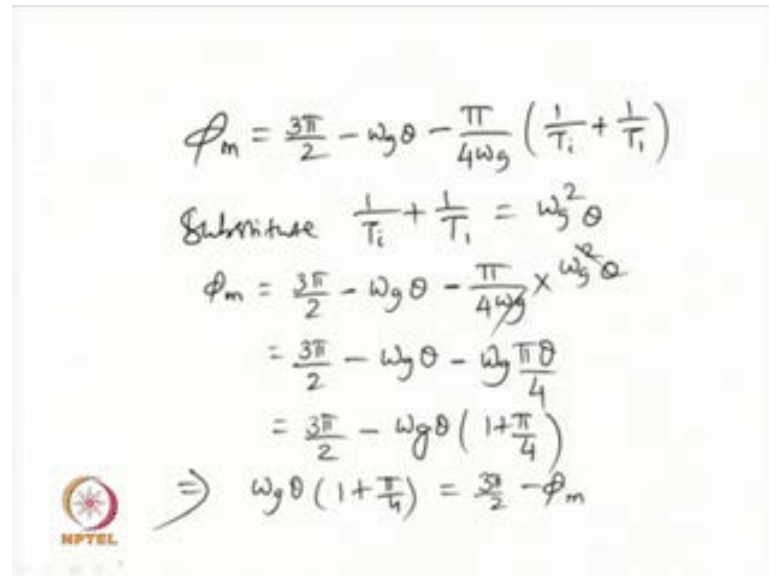 φm = 3π/2 - ωgθ - π/4ωg (1/Ti + 1/T1)
Substitute 1/Ti + 1/T1 = ωg²θ
φm = 3π/2 - ωgθ - π/4ωg × ωg²θ
= 3π/2 - ωgθ - ωg πθ/4
= 3π/2 - ωgθ (1+π/4)
⇒ ωgθ (1+π/4) = 3π/2 - φm
NPTEL